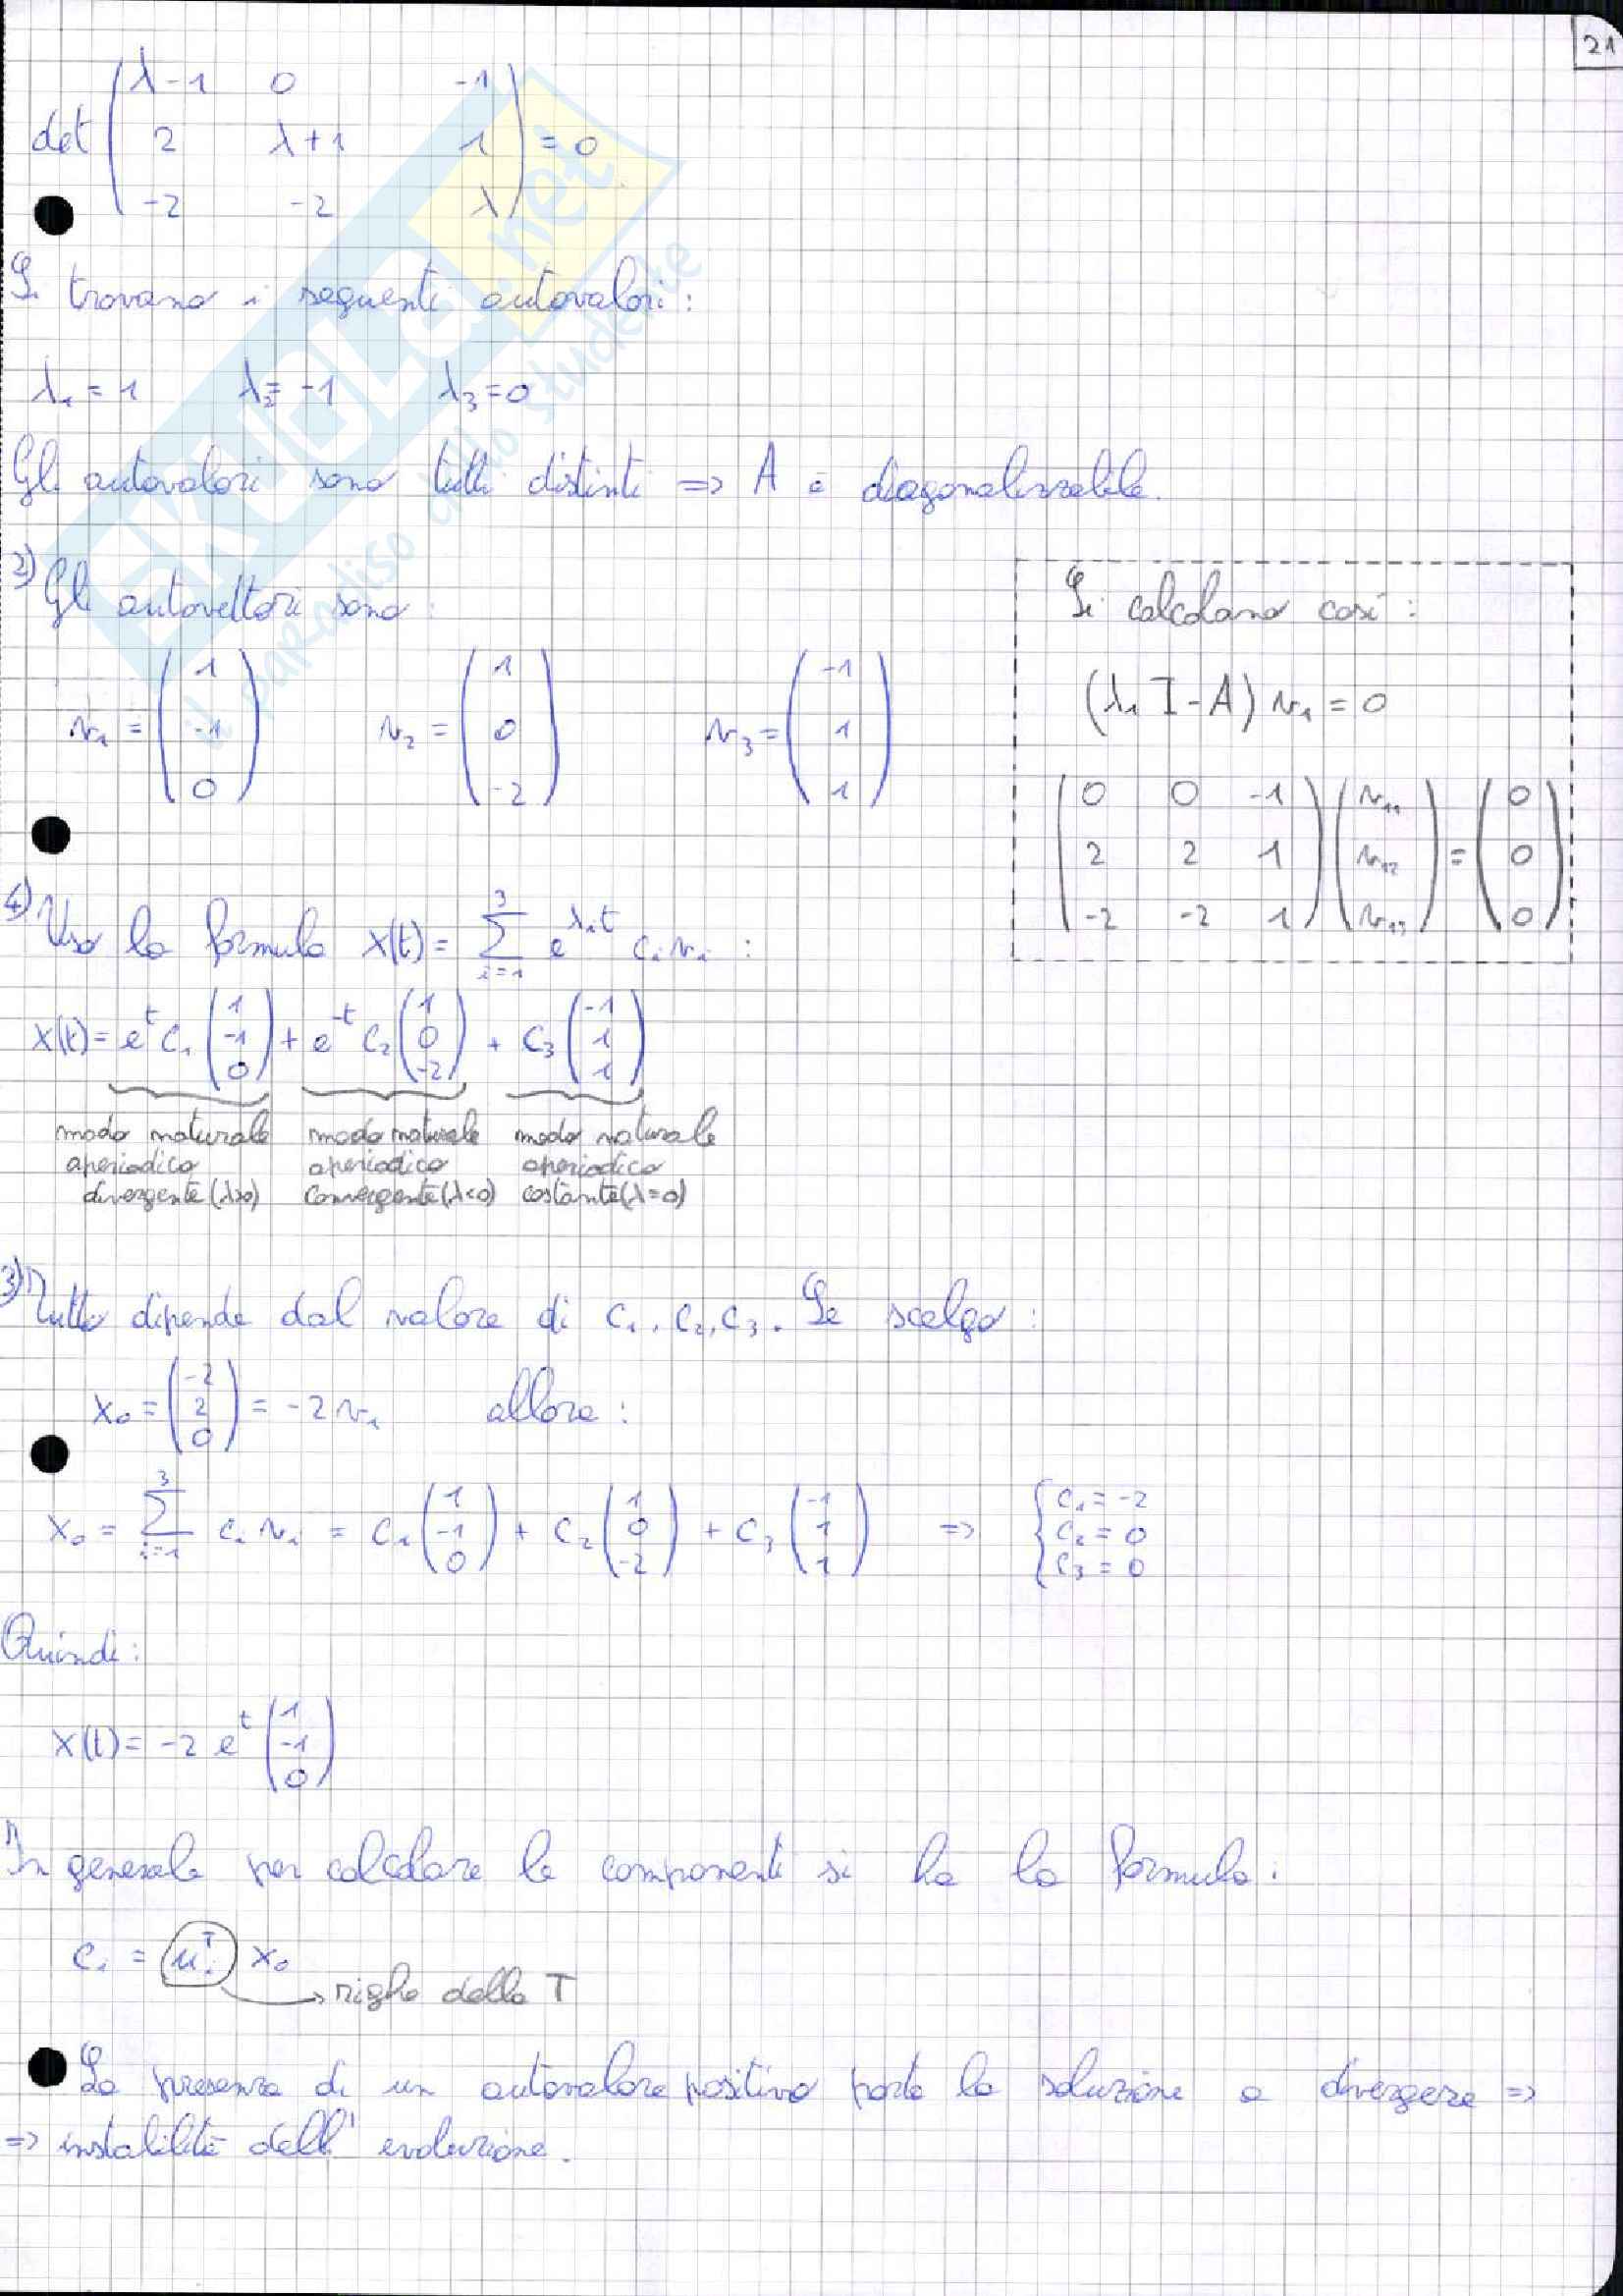 21
det ( λ-1 0 -1
2 λ+1 1
-2 -2 λ ) = 0
Si trovano i seguenti autovalori:
λ₁ = 1 λ₂ = -1 λ₃ = 0
Gli autovalori sono tutti distinti => A è diagonalizzabile.
2) Gli autovettori sono:
v₁ = ( 1 -1 0 ) v₂ = ( 1 0 -2 ) v₃ = ( -1 1 1 )
Si calcolano così:
(λ₁ I - A) v₁ = 0
( 0 0 -1 ) ( v₁₁ ) = ( 0 )
( 2 2 1 ) ( v₁₂ ) = ( 0 )
( -2 -2 1 ) ( v₁₃ ) = ( 0 )
4) Uso la formula x(t) = Σ i=1 3 e^λᵢt cᵢ vᵢ :
x(t) = e^t c₁ ( 1 -1 0 ) + e^-t c₂ ( 1 0 -2 ) + c₃ ( -1 1 1 )
modo naturale aperiodico divergente (λ>0)
modo naturale aperiodico convergente (λ<0)
modo naturale aperiodico costante (λ=0)
3) Tutto dipende dal valore di c₁, c₂, c₃. Se scelgo:
x₀ = ( -2 2 0 ) = -2 v₁ allora:
x₀ = Σ i=1 3 cᵢ vᵢ = c₁ ( 1 -1 0 ) + c₂ ( 1 0 -2 ) + c₃ ( -1 1 1 ) => { c₁ = -2 c₂ = 0 c₃ = 0
Quindi:
x(t) = -2 e^t ( 1 -1 0 )
In generale per calcolare le componenti si ha la formula:
cᵢ = uᵢᵀ x₀
righe della T
La presenza di un autovalore positivo porta la soluzione a divergere =>
=> instabilità dell'evoluzione.
SKUOLA.net
il paradiso dello studente